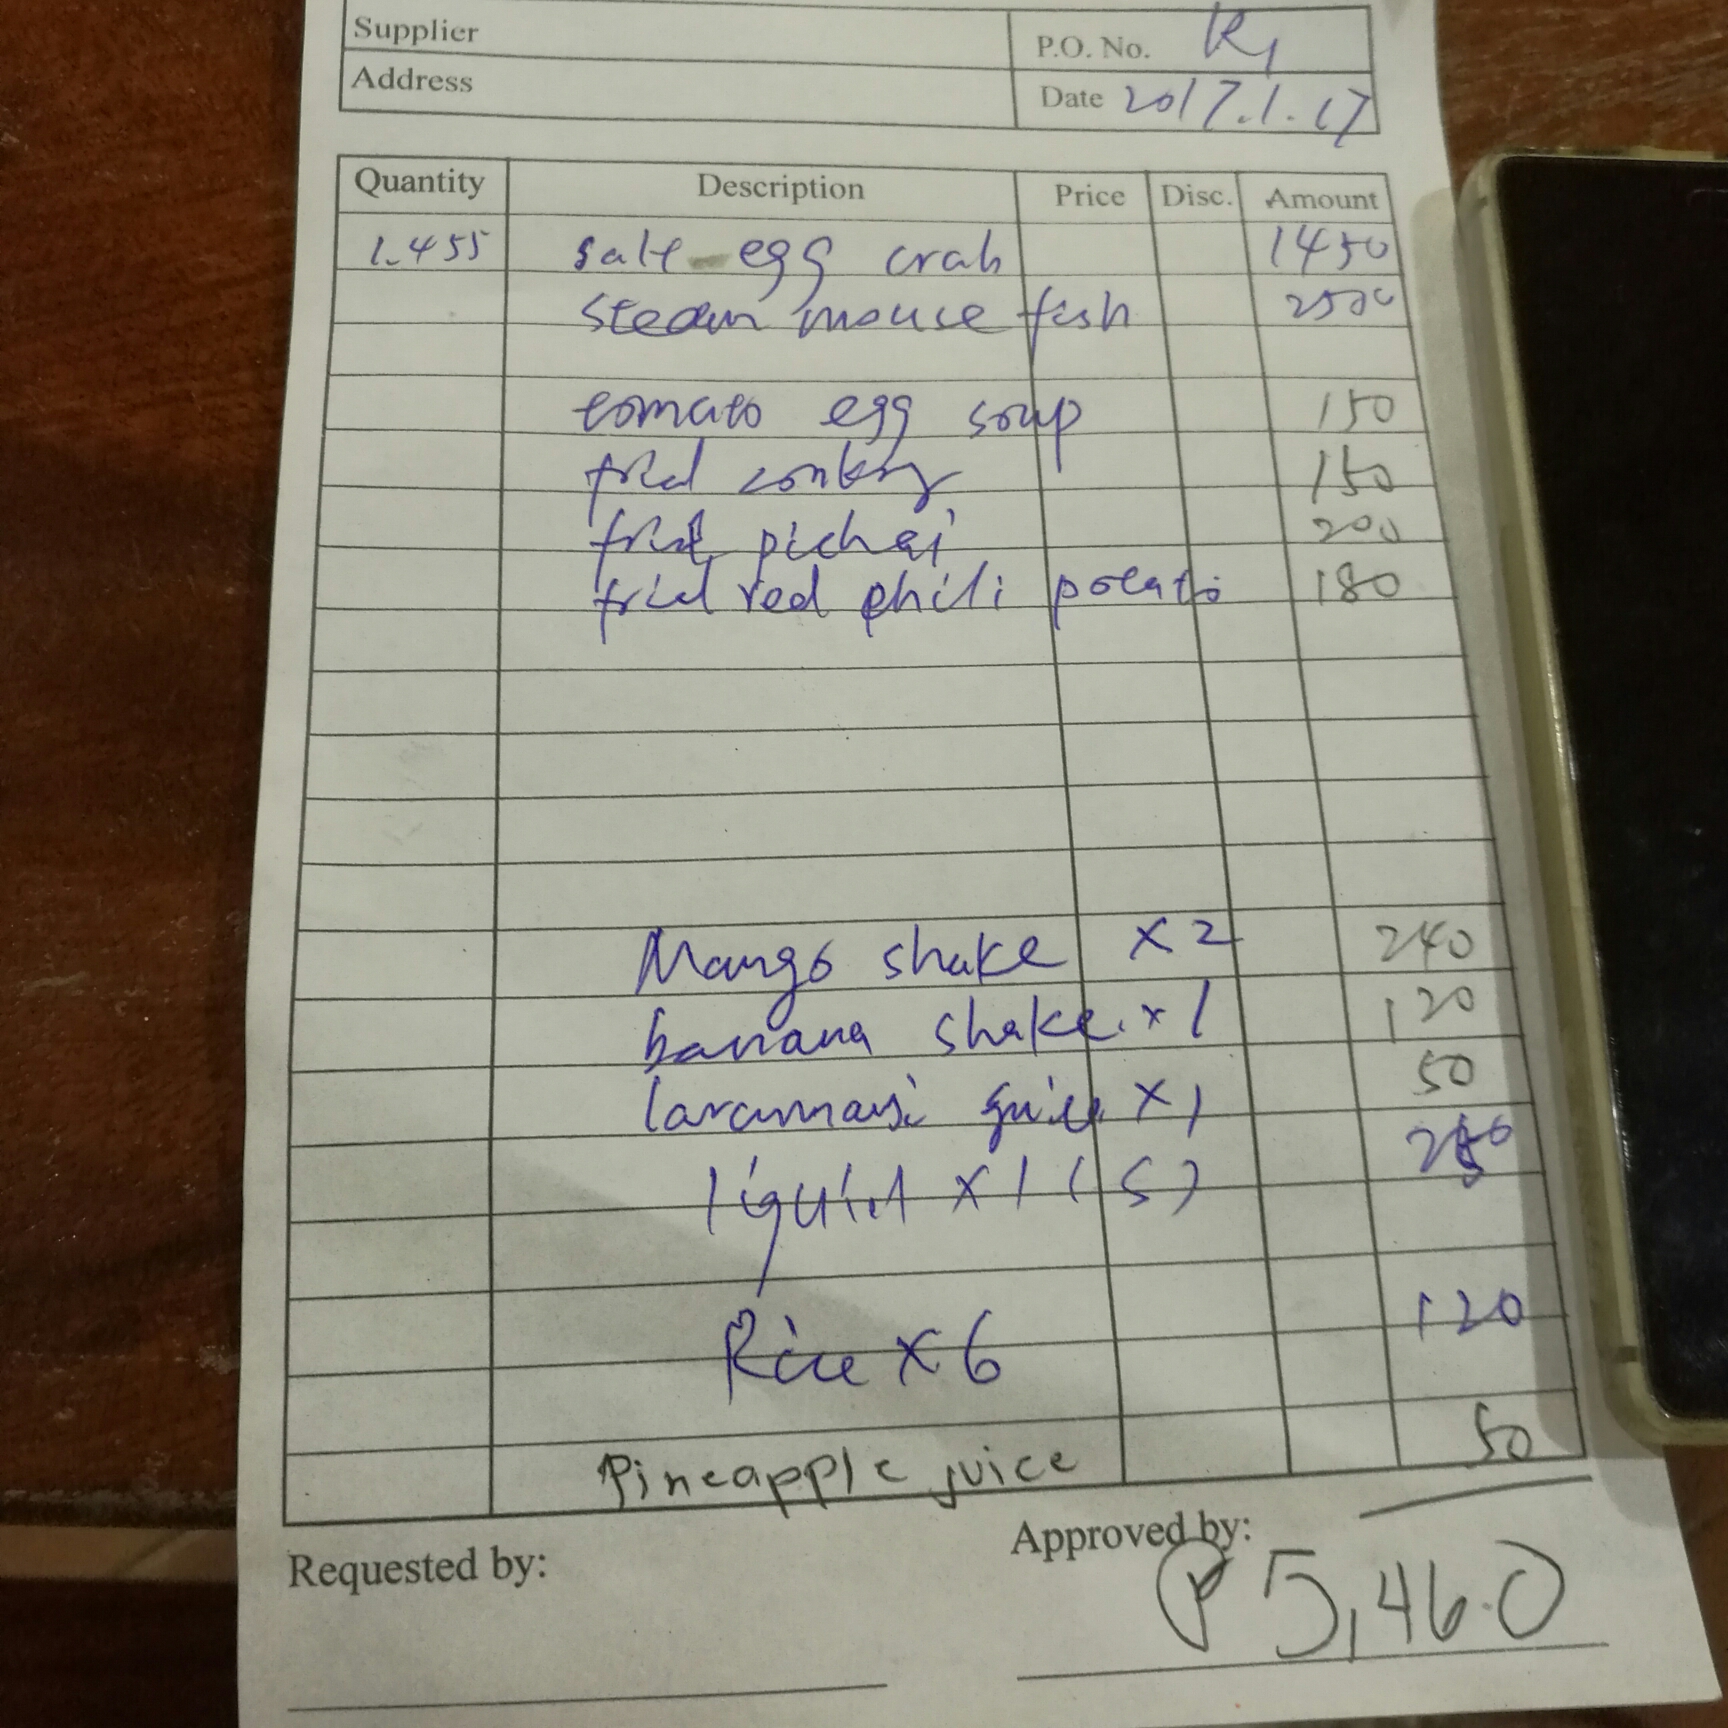 Supplier
P.O. No. R1
Address
Date 2017.1.17
Quantity Description Price Disc. Amount
1.455 salt egg crab 1450
steam mouse fish 2500
tomato egg soup 150
frid 150
frid pichai 200
frid red phili potato 180
Mango shake x2 240
banana shake x1 120
x1 50
x1 (5)
Rice x6 120
Pineapple juice 50
Requested by:
Approved by:
₱5,460